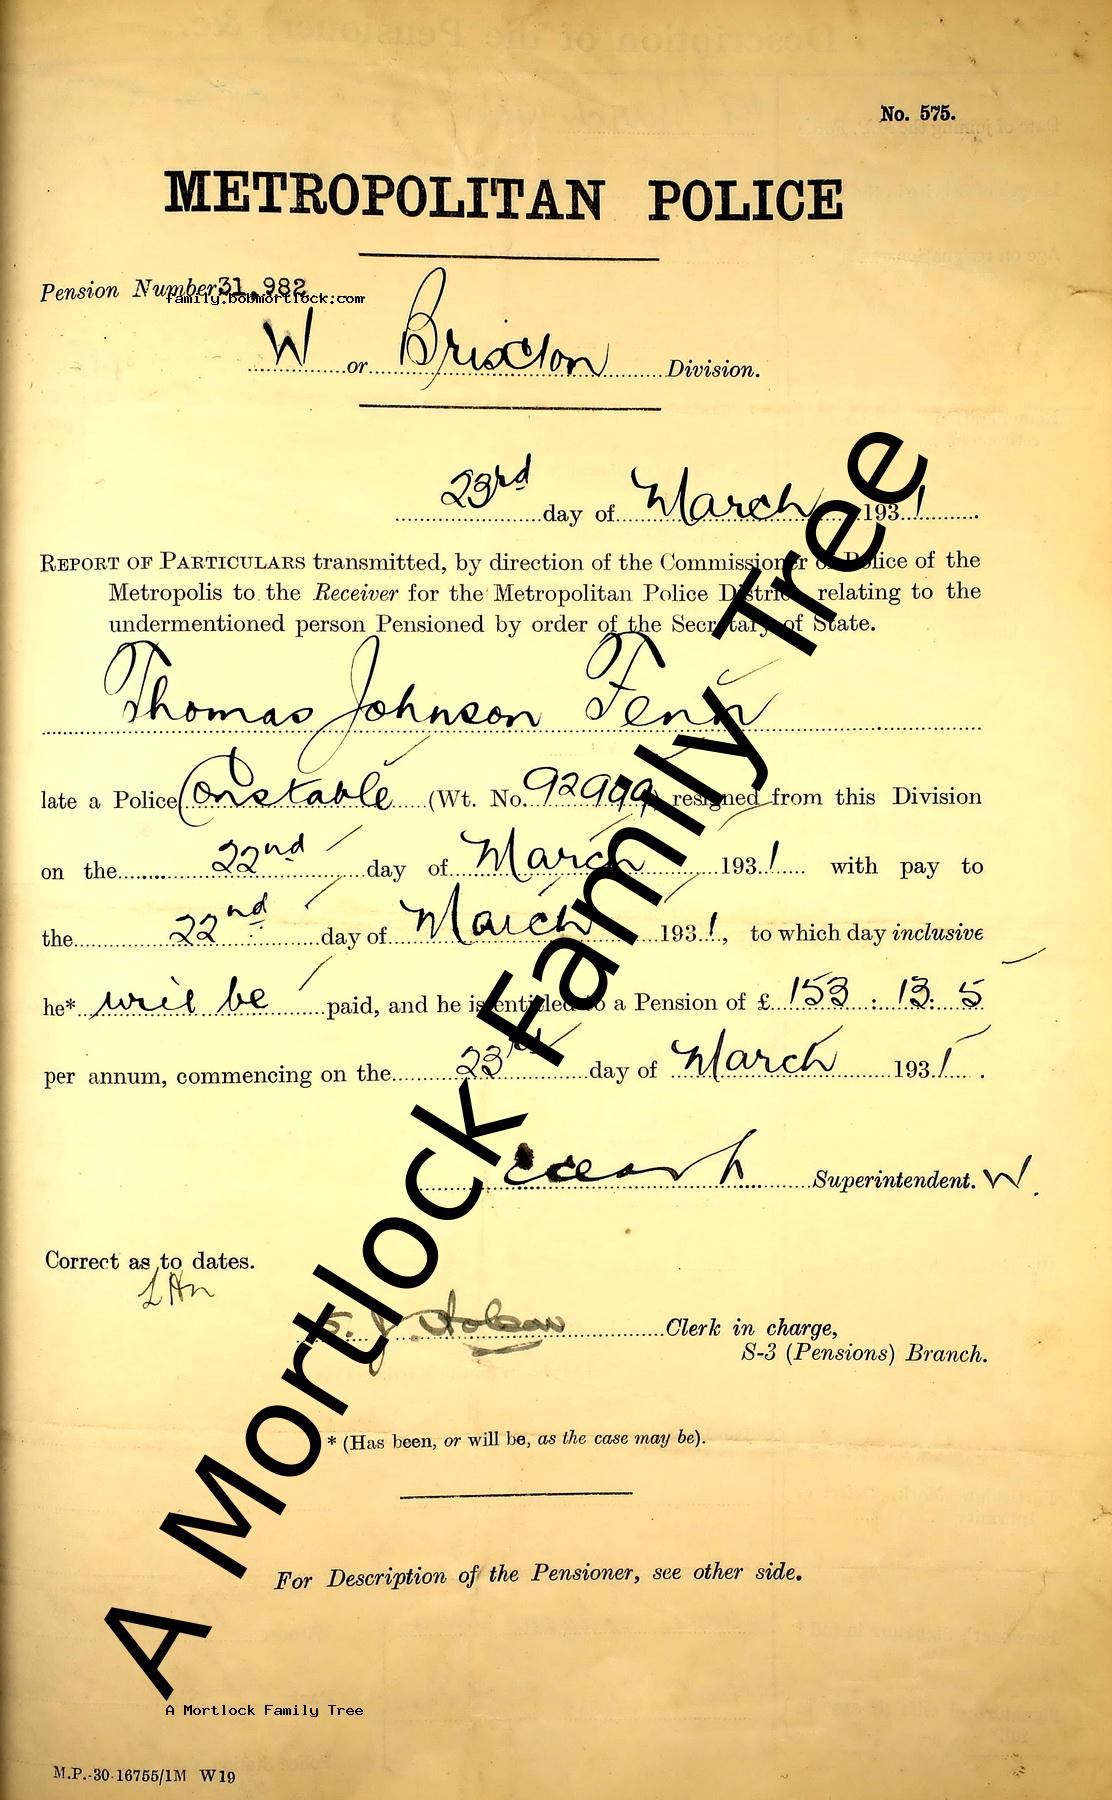 No. 575.
METROPOLITAN POLICE
Pension Number 31,982
family.bobmortlock.com
W or Brixton Division.
23rd day of March 1931.
REPORT OF PARTICULARS transmitted, by direction of the Commissioner of Police of the
Metropolis to the Receiver for the Metropolitan Police District relating to the
undermentioned person Pensioned by order of the Secretary of State.
Thomas Johnson Fenn
late a Police Constable (Wt. No. 92999) resigned from this Division
on the 22nd day of March 1931 with pay to
the 22nd day of March 1931, to which day inclusive
he* will be paid, and he is entitled to a Pension of £ 153 : 13 : 5
per annum, commencing on the 23rd day of March 1931.
Superintendent. W.
Correct as to dates.
Clerk in charge,
S-3 (Pensions) Branch.
* (Has been, or will be, as the case may be).
For Description of the Pensioner, see other side.
A Mortlock Family Tree
A Mortlock Family Tree
M.P.-30-16755/1M W19